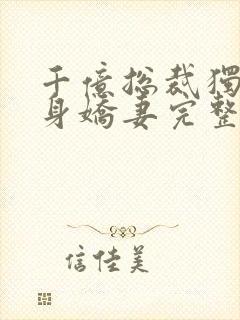 千億總裁獨
身嬌妻完整
信佳美